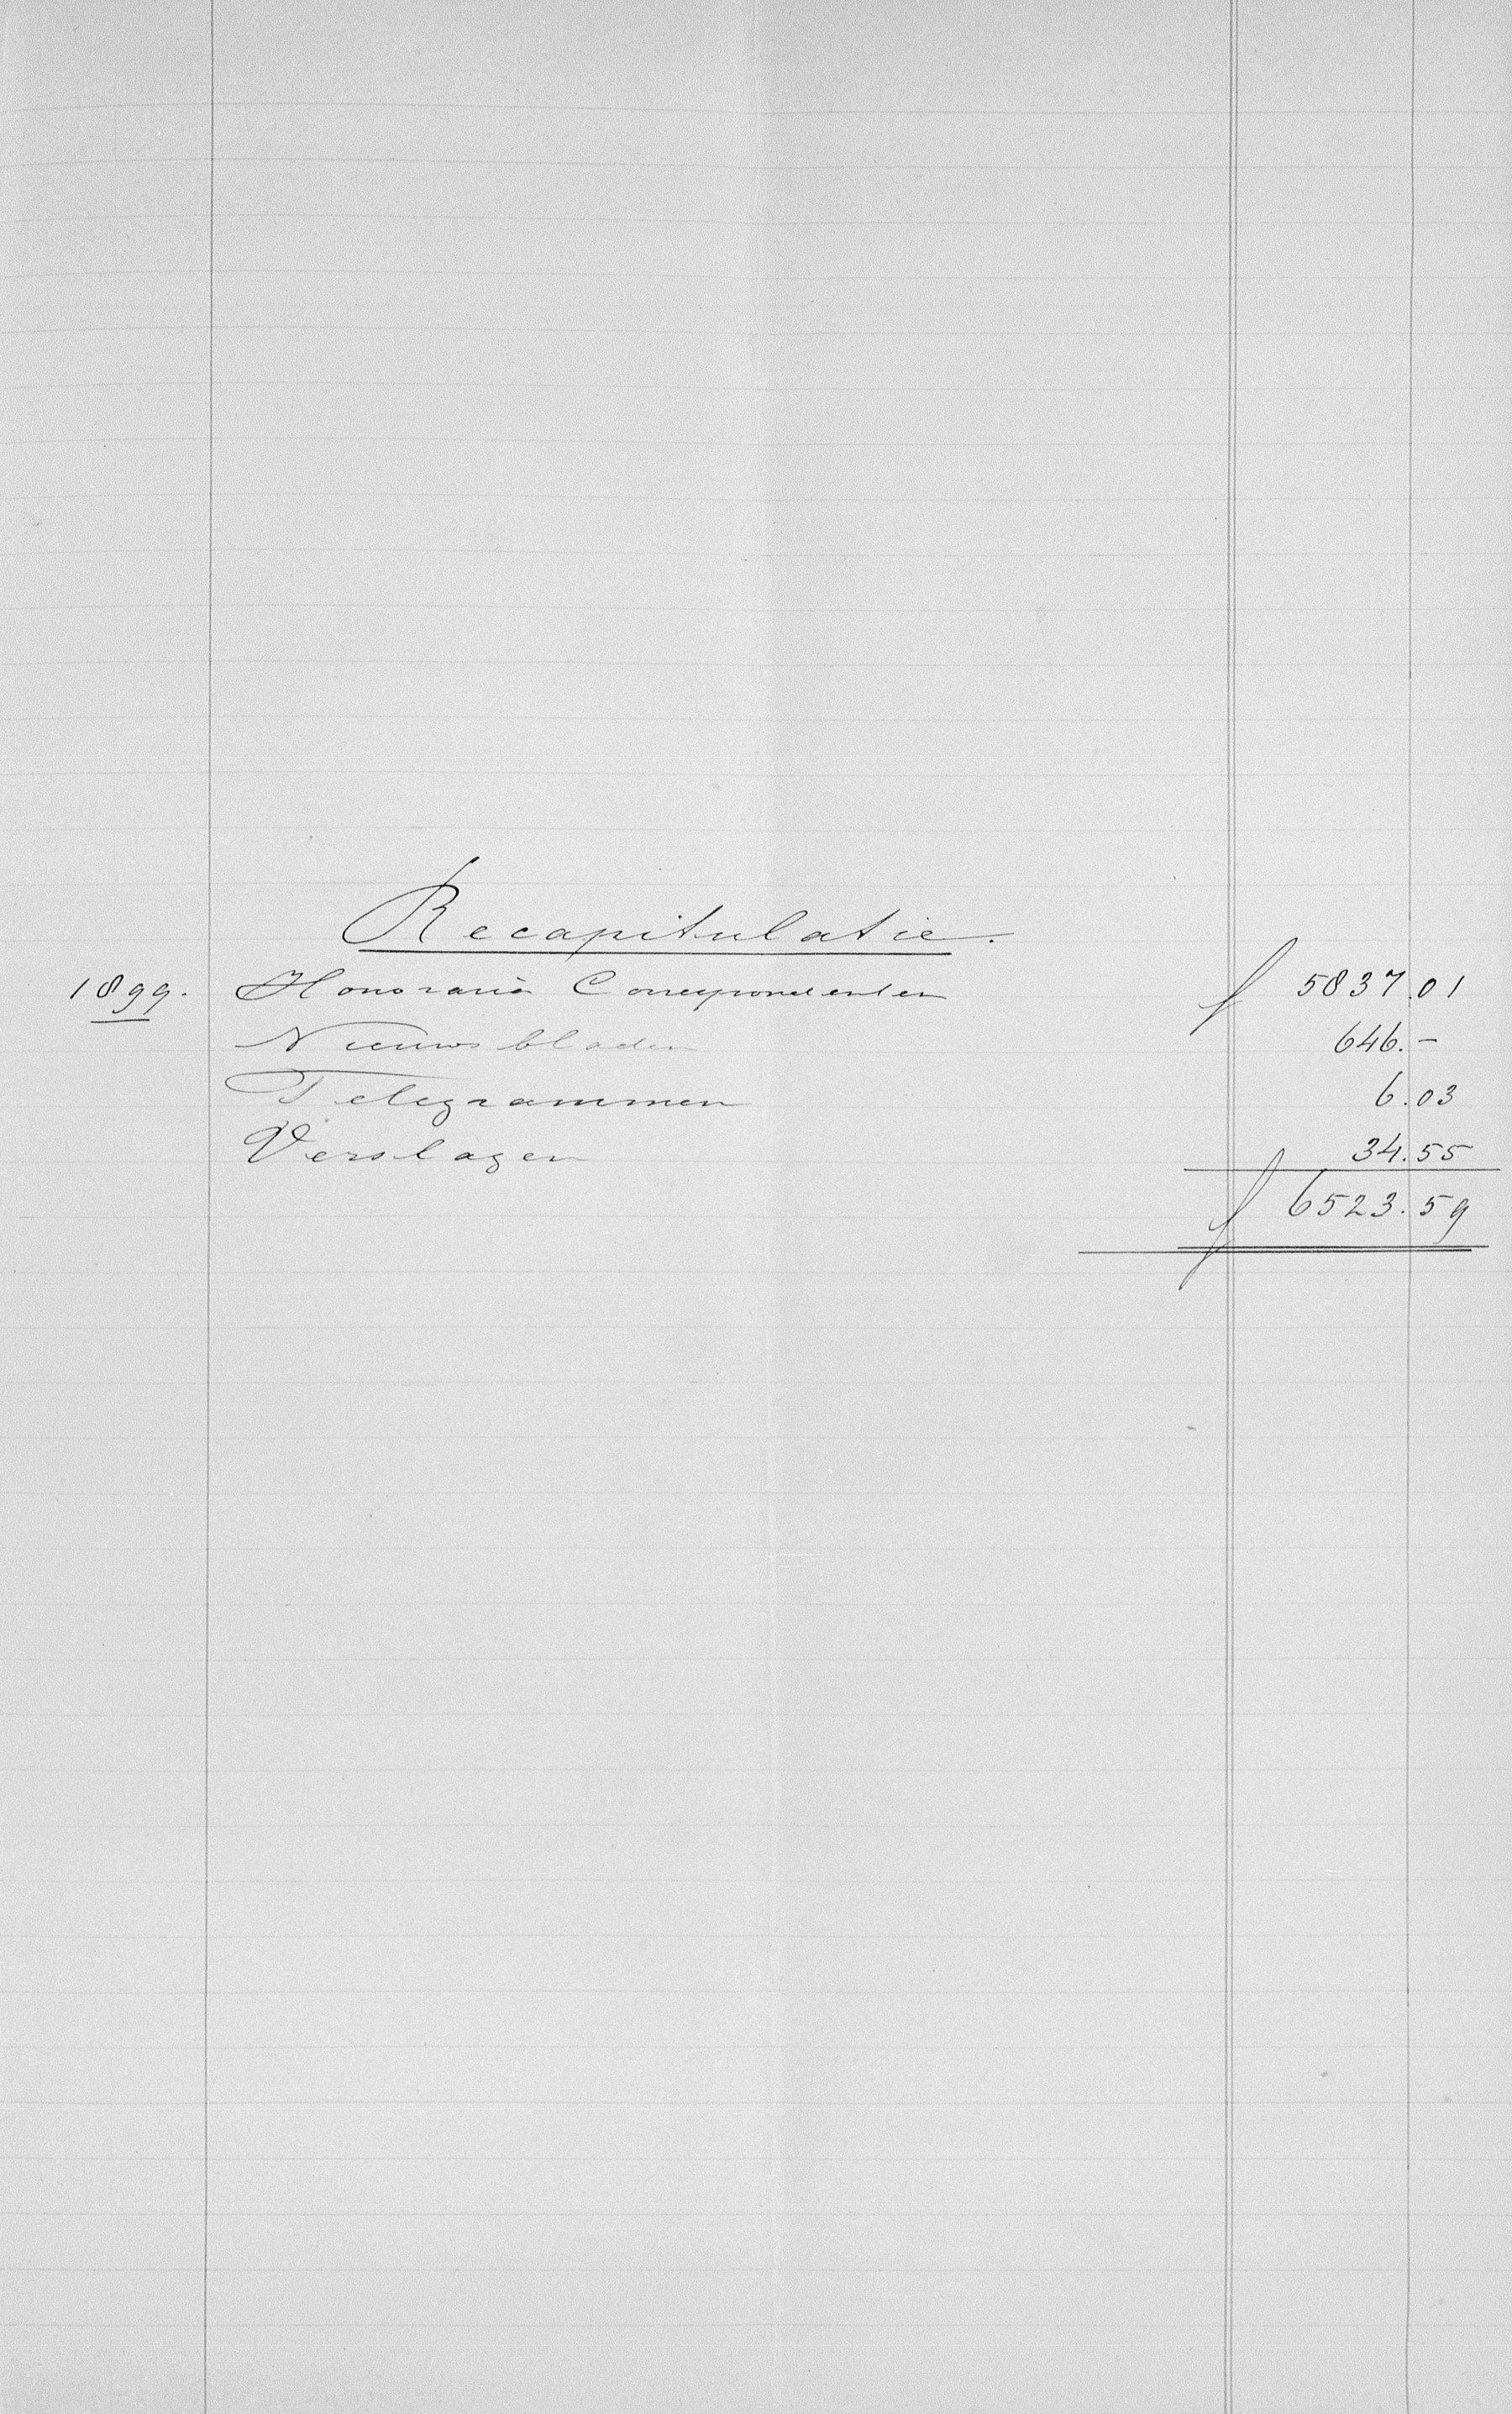 Recapitulatie.
1899. Honoraria Correspondenten f 5837.01
Nieuwsbladen 646.-
Telegrammen 6.03
Verslagen 34.55
f 6523.59